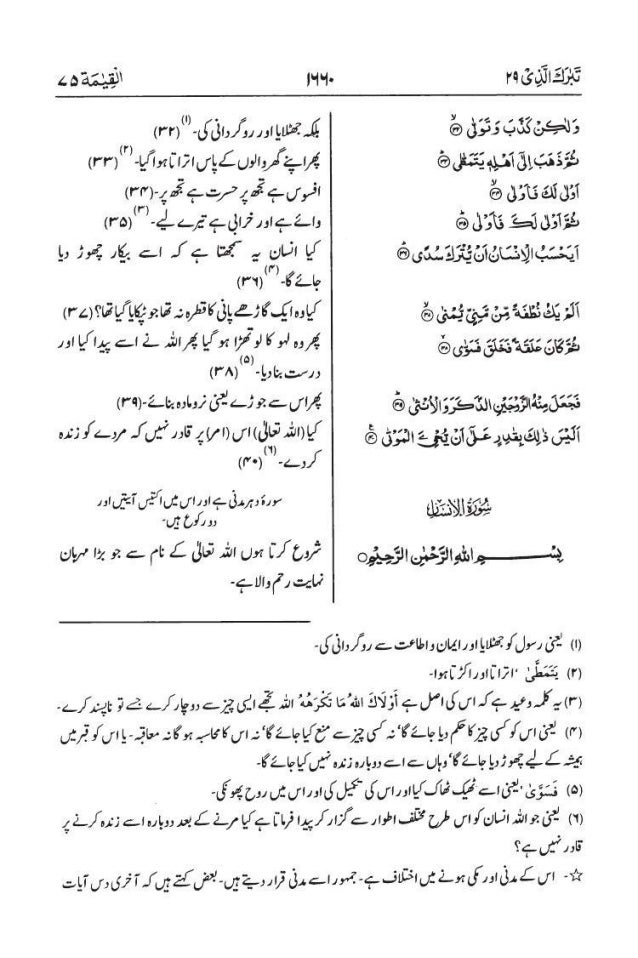 تَبٰرَكَ الَّذِیْ ۲۹
۱۶۶۰
الْقِیٰمَة ۷۵
وَلٰكِنْ كَذَّبَ وَتَوَلّٰى ۝۳۲
ثُمَّ ذَهَبَ اِلٰٓى اَهْلِهٖ يَتَمَطّٰى ۝۳۳
اَوْلٰى لَكَ فَاَوْلٰى ۝۳۴
ثُمَّ اَوْلٰى لَكَ فَاَوْلٰى ۝۳۵
اَيَحْسَبُ الْاِنْسَانُ اَنْ يُّتْرَكَ سُدًى ۝۳۶
اَلَمْ يَكُ نُطْفَةً مِّنْ مَّنِيٍّ يُّمْنٰى ۝۳۷
ثُمَّ كَانَ عَلَقَةً فَخَلَقَ فَسَوّٰى ۝۳۸
فَجَعَلَ مِنْهُ الزَّوْجَيْنِ الذَّكَرَ وَالْاُنْثٰى ۝۳۹
اَلَيْسَ ذٰلِكَ بِقٰدِرٍ عَلٰٓى اَنْ يُّحْيِۦَ الْمَوْتٰى ۝۴۰
سُوْرَةُ الْاِنْسَانِ
بِسْمِ اللهِ الرَّحْمٰنِ الرَّحِيْمِ ۝
بلکہ جھٹلایا اور روگردانی کی۔(۱) (۳۲)
پھر اپنے گھر والوں کے پاس اتراتا ہوا گیا۔(۲) (۳۳)
افسوس ہے تجھ پر حسرت ہے تجھ پر۔ (۳۴)
وائے ہے اور خرابی ہے تیرے لیے۔(۳) (۳۵)
کیا انسان یہ سمجھتا ہے کہ اسے بیکار چھوڑ دیا
جائے گا۔(۴) (۳۶)
کیا وہ ایک گاڑھے پانی کا قطرہ نہ تھا جو ٹپکایا گیا تھا؟ (۳۷)
پھر وہ لہو کا لوتھڑا ہو گیا پھر اللہ نے اسے پیدا کیا اور
درست بنا دیا۔(۵) (۳۸)
پھر اس سے جوڑے یعنی نر و مادہ بنائے۔ (۳۹)
کیا (اللہ تعالیٰ) اس (امر) پر قادر نہیں کہ مردے کو زندہ
کر دے۔(۶) (۴۰)
سورۂ دہر مدنی ہے اور اس میں اکتیس آیتیں اور
دو رکوع ہیں۔
شروع کرتا ہوں اللہ تعالیٰ کے نام سے جو بڑا مہربان
نہایت رحم والا ہے۔
(۱) یعنی رسول کو جھٹلایا اور ایمان و اطاعت سے روگردانی کی۔
(۲) یَتَمَطّٰی ' اتراتا اور اکڑتا ہوا۔
(۳) یہ کلمہ وعید ہے کہ اس کی اصل ہے أَوْلَاكَ اللهُ مَا تَكْرَهُهُ اللہ تجھے ایسی چیز سے دوچار کرے جسے تو ناپسند کرے۔
(۴) یعنی اس کو کسی چیز کا حکم دیا جائے گا' نہ کسی چیز سے منع کیا جائے گا' نہ اس کا محاسبہ ہو گا نہ معاقبہ۔ یا اس کو قبر میں
ہمیشہ کے لیے چھوڑ دیا جائے گا' وہاں سے اسے دوبارہ زندہ نہیں کیا جائے گا۔
(۵) فَسَوّٰی' یعنی اسے ٹھیک ٹھاک کیا اور اس کی تکمیل کی اور اس میں روح پھونکی۔
(۶) یعنی جو اللہ انسان کو اس طرح مختلف اطوار سے گزار کر پیدا فرماتا ہے کیا مرنے کے بعد دوبارہ اسے زندہ کرنے پر
قادر نہیں ہے؟
☆۔ اس کے مدنی اور مکی ہونے میں اختلاف ہے۔ جمہور اسے مدنی قرار دیتے ہیں۔ بعض کہتے ہیں کہ آخری دس آیات